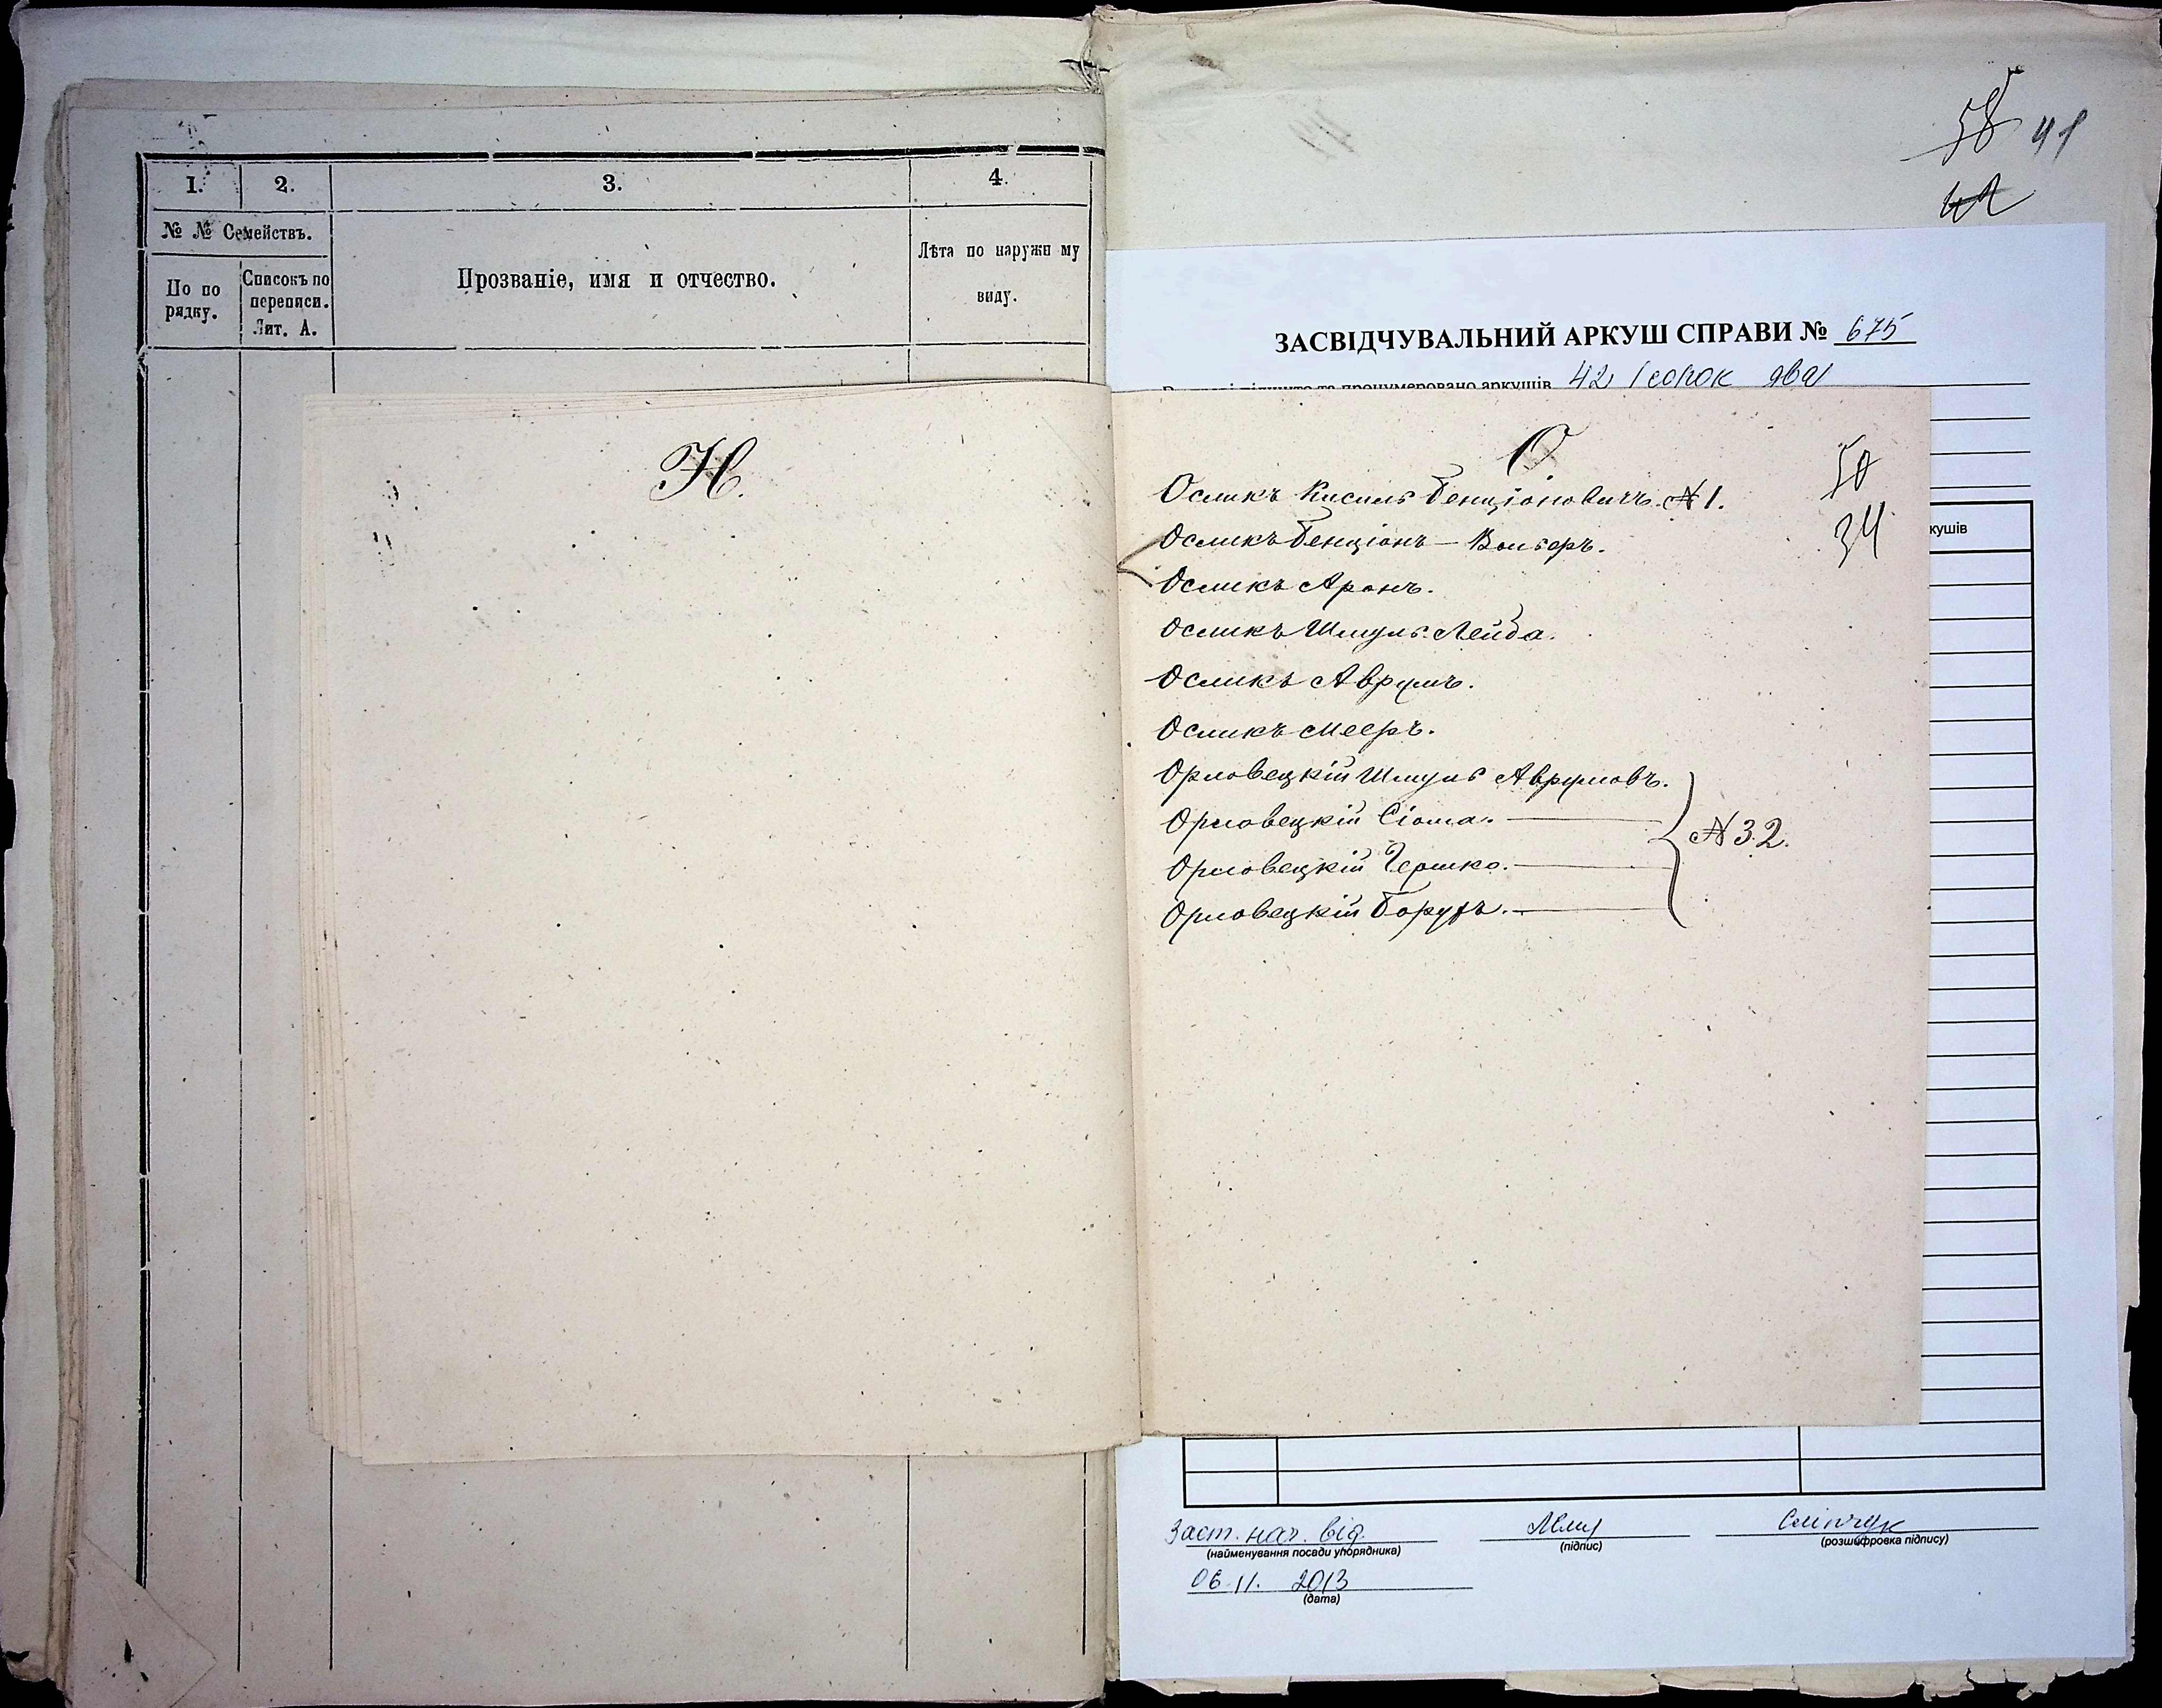 1.
2.
3.
4.
№ № Семействъ.
По по
рядку.
Списокъ по
переписи.
Лит. А.
Прозваніе, имя и отчество.
Лѣта по наружн му
виду.
Н.
58 41
42
ЗАСВІДЧУВАЛЬНИЙ АРКУШ СПРАВИ № 675
та пронумеровано аркушів 42 (сорок два)
О.
50
34
Осликъ Кисиль Бенціоновичъ. № 1.
Осликъ Бенціонъ - Вольфръ.
Осликъ Аронъ.
Осликъ Шмуль Лейба.
Осликъ Аврумъ.
Осликъ Мееръ.
Орловецкій Шмуль Аврумовъ.
Орловецкій Сіома.
№ 32.
Орловецкій Гершко.
Орловецкій Борухъ.
кушів
Заст. нач. від.
(найменування посади упорядника)
(підпис)
Сліпчук
(розшифровка підпису)
06.11. 2013
(дата)